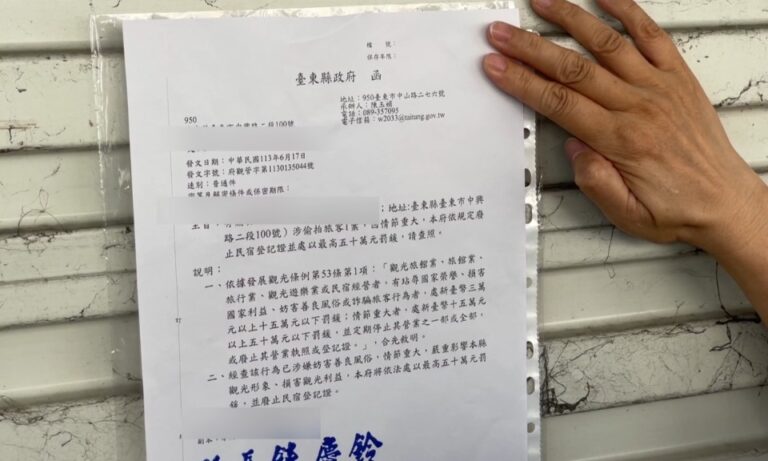 檔 號：
保存年限：
臺東縣政府 函
地址：950臺東市中山路二七六號
承辦人：陳玉嬪
電話：089-357095
電子信箱：w2033@taitung.gov.tw
950
二段100號
發文日期：中華民國113年6月17日
發文字號：府觀管字第1130135044號
速別：普通件
密等及解密條件或保密期限：
主旨：；地址:臺東縣臺東市中興
路二段100號）涉偷拍旅客1案，因情節重大，本府依規定廢
止民宿登記證並處以最高五十萬元罰鍰，請查照。
說明：
一、依據發展觀光條例第53條第1項：「觀光旅館業、旅館業、
旅行業、觀光遊樂業或民宿經營者，有玷辱國家榮譽、損害
國家利益、妨害善良風俗或詐騙旅客行為者，處新臺幣三萬
元以上十五萬元以下罰鍰；情節重大者，處新臺幣十五萬元
以上五十萬元以下罰鍰，並定期停止其營業之一部或全部，
或廢止其營業執照或登記證。」，合先敘明。
二、經查該行為已涉嫌妨害善良風俗，情節重大，嚴重影響本縣
觀光形象、損害觀光利益，本府將依法處以最高五十萬元罰
鍰，並廢止民宿登記證。
副本：
縣長饒慶鈴